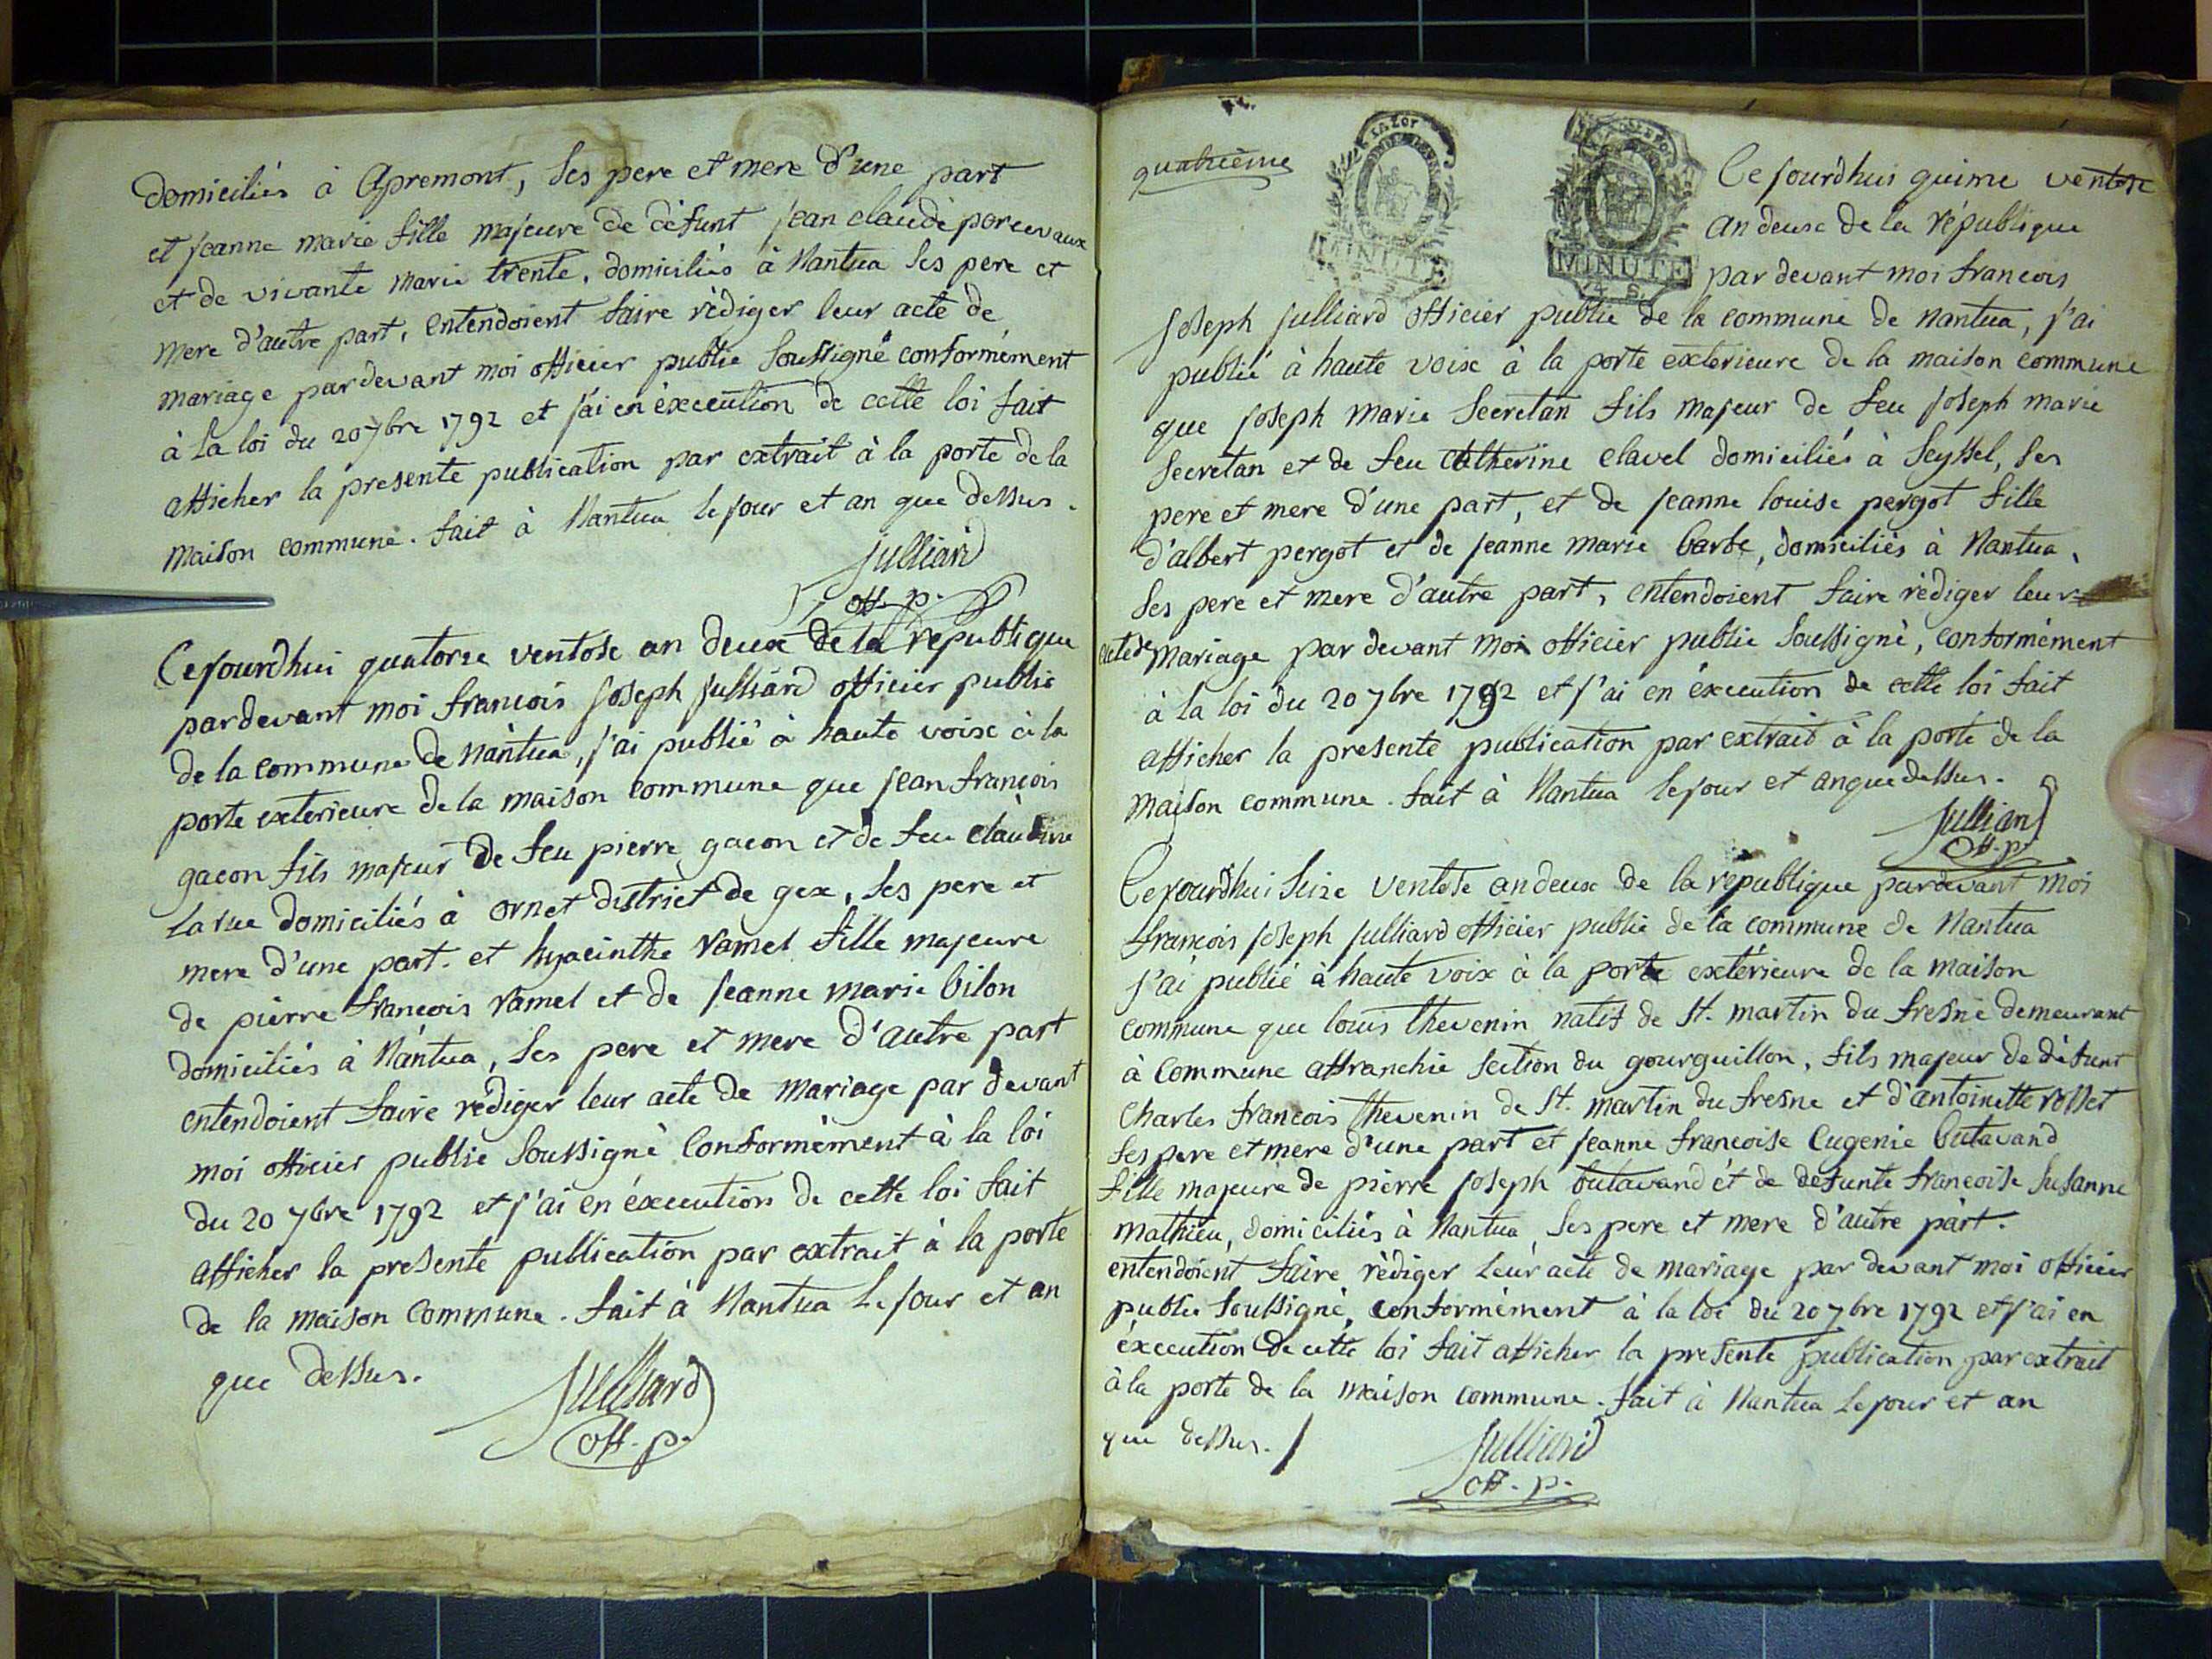 domiciliés à Apremont, ses pere et mere d'une part
et jeanne marie fille majeure de défunt jean claude porcevaux
et de vivante marie trente, domiciliés à Nantua ses pere et
mere d'autre part, entendoient faire rédiger leur acte de
mariage pardevant moi officier public soussigné conformément
à la loi du 20 7bre 1792 et j'ai en éxecution de cette loi fait
afficher la presente publication par extrait à la porte de la
maison commune. fait à Nantua le jour et an que dessus.
Julliard
off. p.
Cejourdhui quatorze ventose an deux de la republique
pardevant moi francois joseph julliard officier public
de la commune de Nantua, j'ai publié à haute voix à la
porte exterieure de la maison commune que jean francois
gacon fils majeur de feu pierre gacon et de feu claudine
larue domiciliés à ornet district de gex, ses pere et
mere d'une part. et hyacinthe ramel fille majeure
de pierre francois ramel et de jeanne marie bilon
domiciliés à Nantua, ses pere et mere d'autre part
entendoient faire rédiger leur acte de mariage par devant
moi officier public soussigné conformément à la loi
du 20 7bre 1792 et j'ai en éxecution de cette loi fait
afficher la presente publication par extrait à la porte
de la maison commune. fait à Nantua le jour et an
que dessus.
Julliard
off. p.
quatrième
MINUTE
MINUTE
4 S.
Ce jourdhui quinze ventose
an deux de la république
par devant moi francois
joseph julliard officier public de la commune de Nantua, j'ai
publié à haute voix à la porte exterieure de la maison commune
que joseph marie secretan fils majeur de feu joseph marie
secretan et de feu Catherine clavel domiciliés à seyssel, ses
pere et mere d'une part, et de jeanne louise pergot fille
d'albert pergot et de jeanne marie barbe, domiciliés à Nantua,
ses pere et mere d'autre part, entendoient faire rédiger leur
acte de mariage par devant moi officier public soussigné, conformément
à la loi du 20 7bre 1792 et j'ai en éxecution de cette loi fait
afficher la presente publication par extrait à la porte de la
maison commune. fait à Nantua le jour et an que dessus.
Julliard
off. p.
Cejourdhui seize ventose an deux de la republique pardevant moi
francois joseph julliard officier public de la commune de Nantua
j'ai publié à haute voix à la porte extérieure de la maison
commune que louis thevenin natif de St. martin du fresne demeurant
à commune affranchie section du gourguillon, fils majeur de défunt
charles francois thevenin de St. martin du fresne et d'antoinette rosset
ses pere et mere d'une part et jeanne francoise Eugenie butavand
fille majeure de pierre joseph butavand et de defunte francoise susanne
mathieu, domiciliés à Nantua, ses pere et mere d'autre part.
entendoient faire rédiger leur acte de mariage par devant moi officier
public soussigné, conformément à la loi du 20 7bre 1792 et j'ai en
éxecution de cette loi fait afficher la presente publication par extrait
à la porte de la maison commune. fait à Nantua le jour et an
que dessus. /
Julliard
off. p.